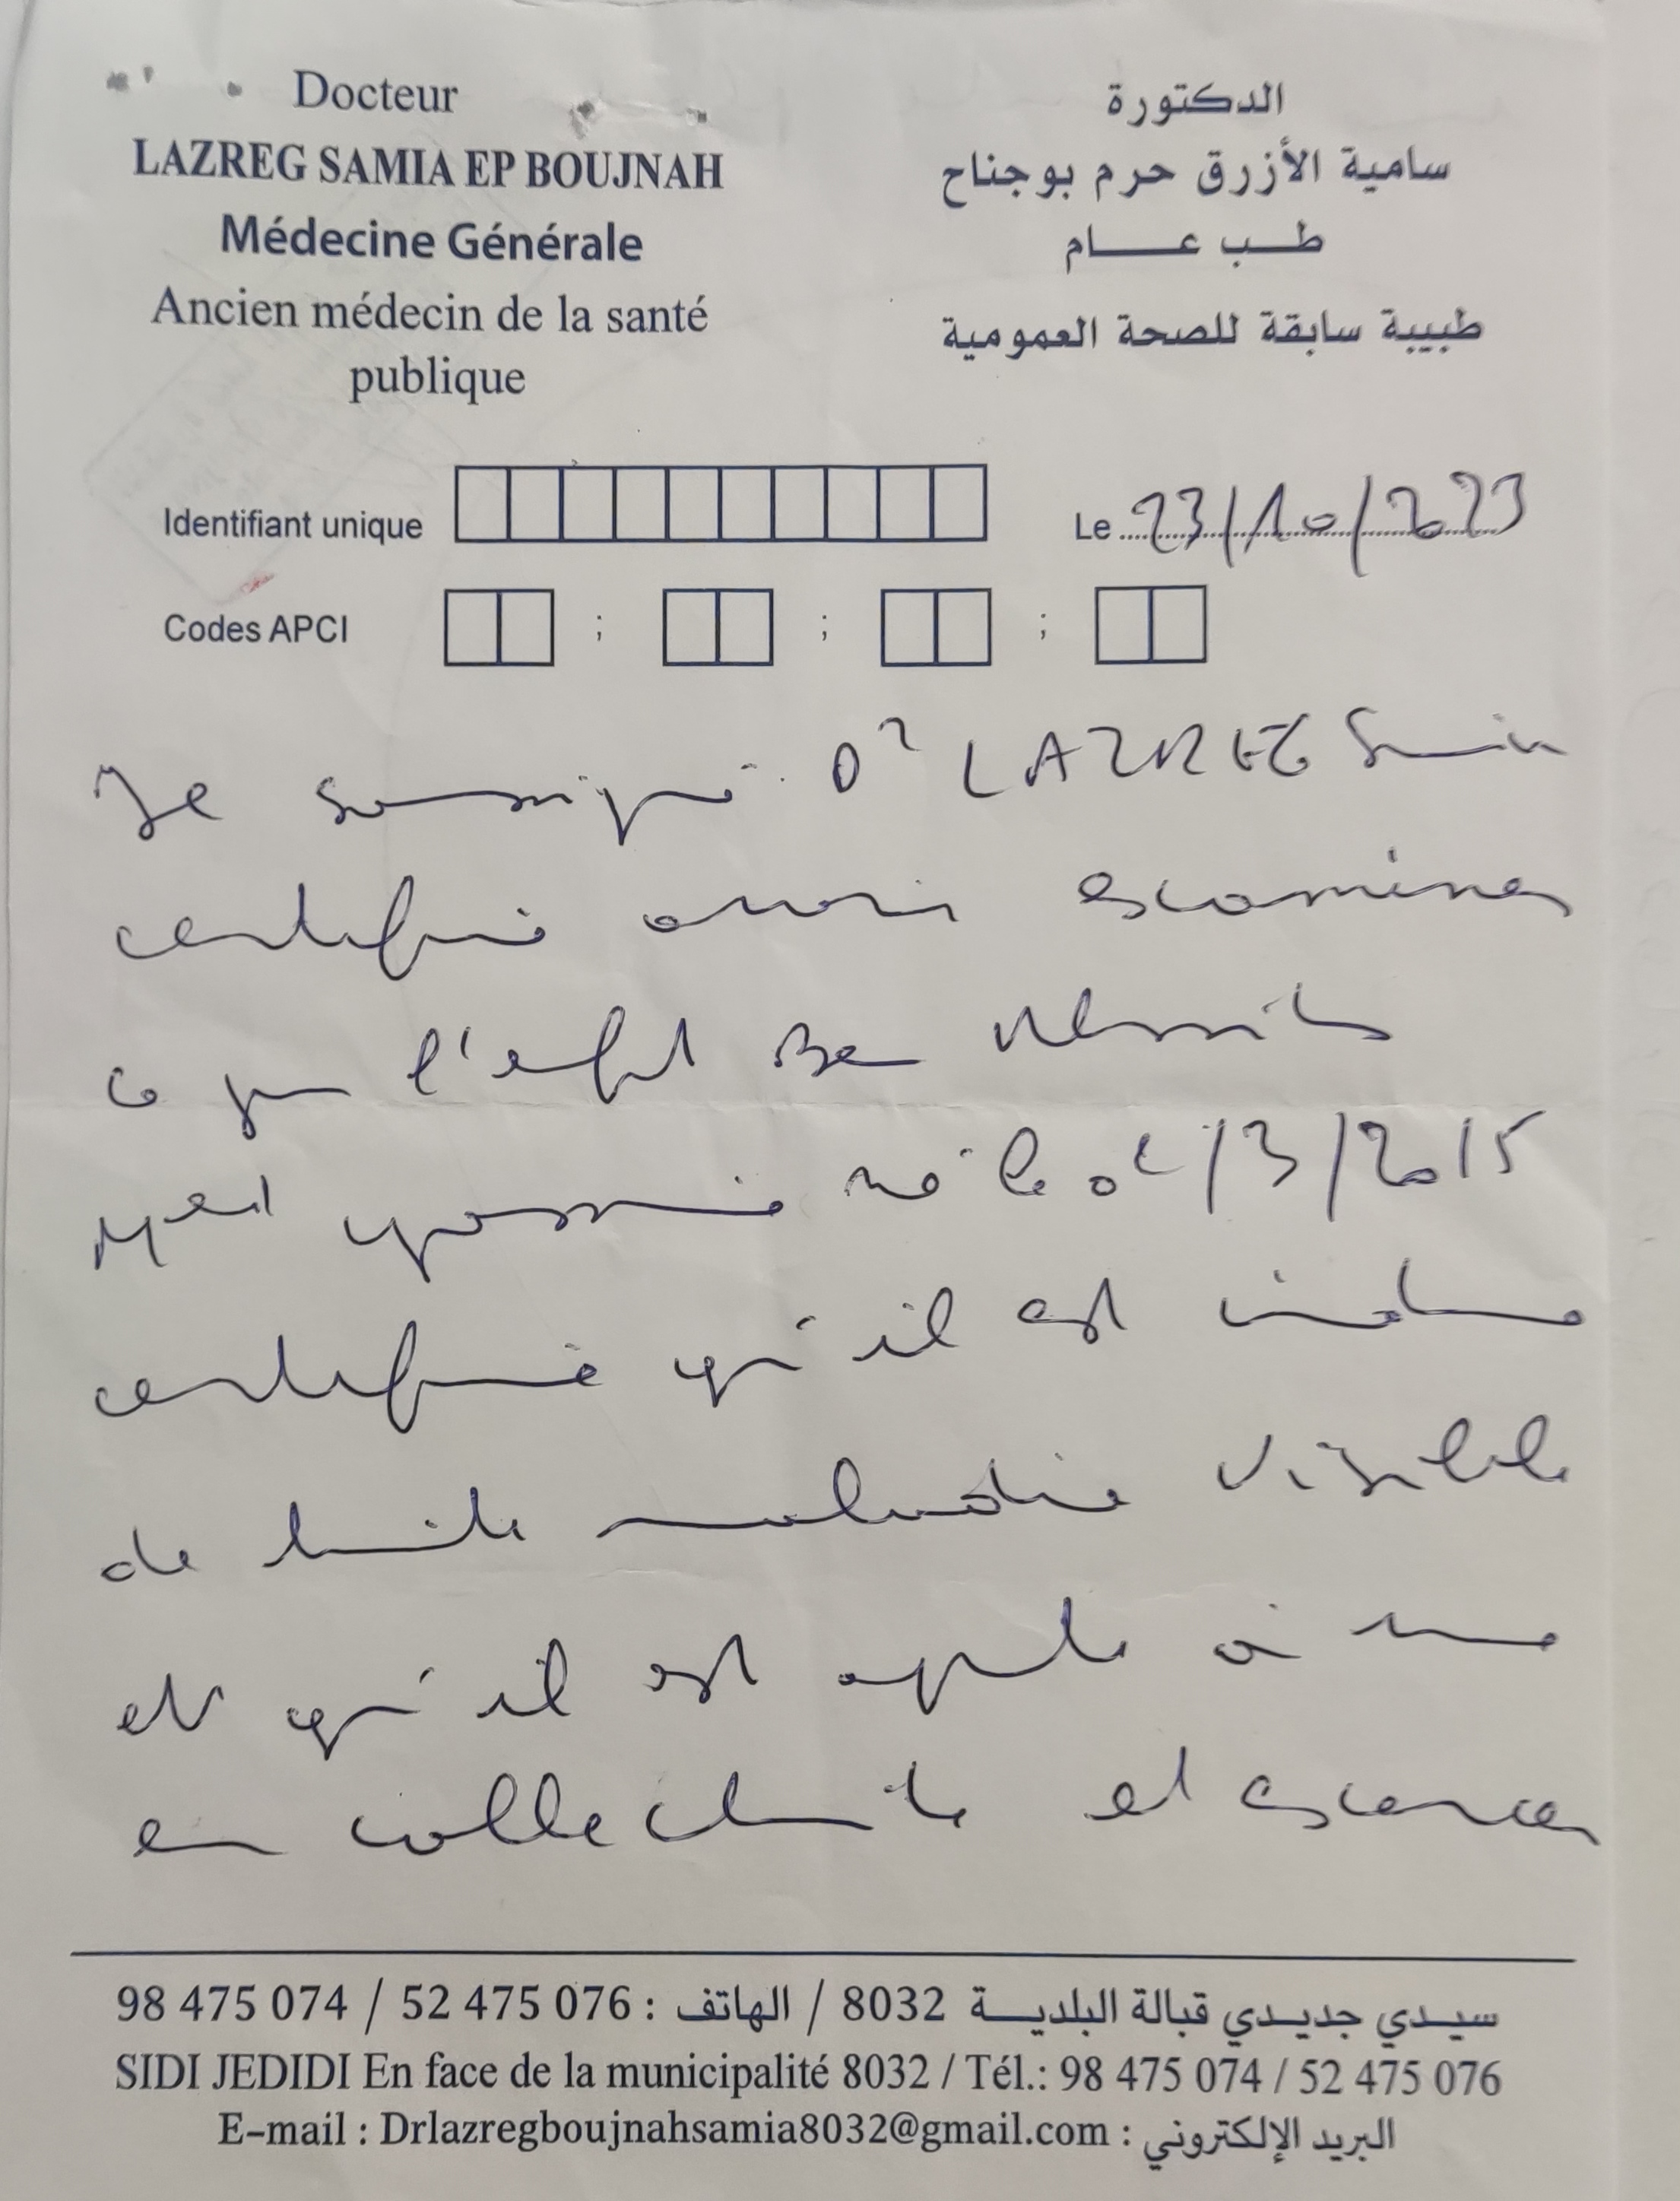 Docteur
LAZREG SAMIA EP BOUJNAH
Médecine Générale
Ancien médecin de la santé
publique
الدكتورة
سامية الأزرق حرم بوجناح
طب عام
طبيبة سابقة للصحة العمومية
Identifiant unique
Le 23/10/2023
Codes APCI ; ; ;
Je soussigné Dr LAZREG Samia
certifie avoir examiner
ce jour l'enfant Ben
né le /3/2015
certifie qu'il est indemne
de toute maladie visible
et qu'il est apte à
en collectivité et exercer
سيدي جديدي قبالة البلدية 8032 / الهاتف : 98 475 074 / 52 475 076
SIDI JEDIDI En face de la municipalité 8032 / Tél.: 98 475 074 / 52 475 076
E-mail : Drlazregboujnahsamia8032@gmail.com : البريد الإلكتروني